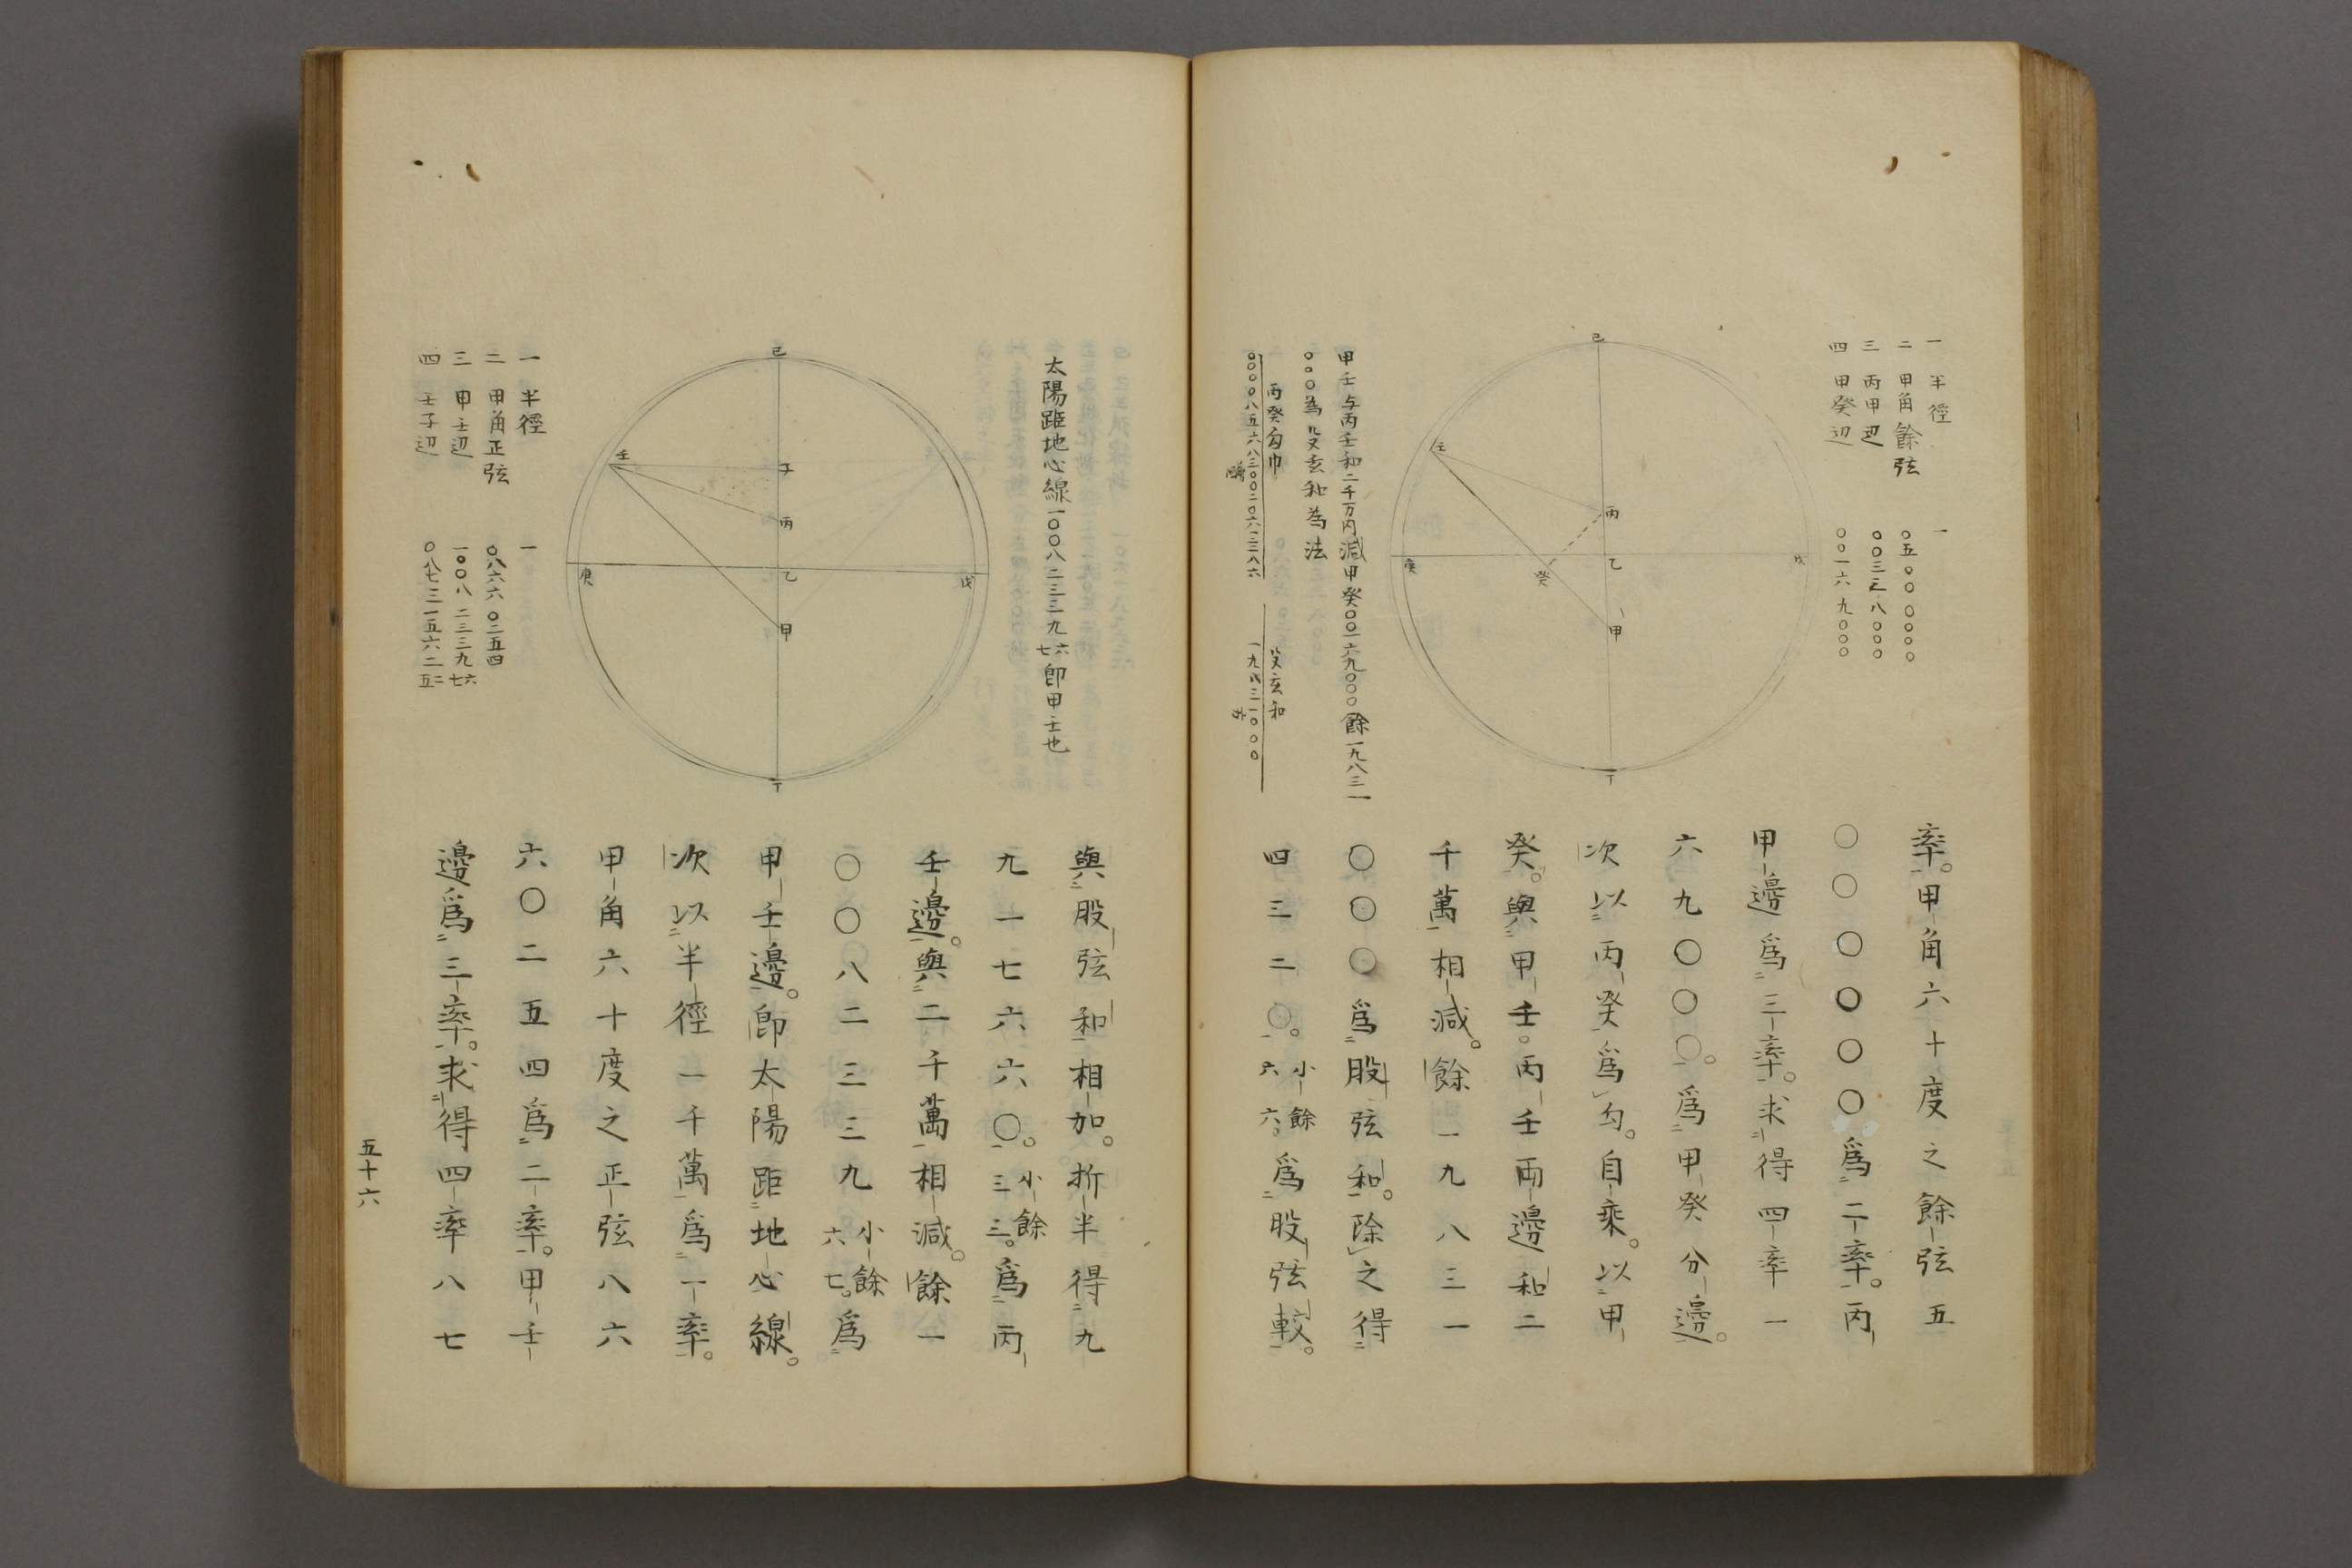 一 半徑 一
二 甲角餘弦 〇五〇〇〇〇〇〇
三 丙甲辺 〇〇三三八〇〇〇
四 甲癸辺 〇〇一六九〇〇〇
己
壬
丙
庚
癸
乙
戊
甲
丁
甲壬与丙壬和二千万内減甲癸〇〇一六九〇〇〇餘一九八三一
〇〇〇為殳玄和為法
丙癸勾巾
殳玄和
一九八三一〇〇〇
率。甲角六十度之餘弦五
〇〇〇〇〇〇爲二率。丙
甲邊爲三率。求得四率一
六九〇〇〇。爲甲癸分邊。
次以丙癸爲勾。自乘。以甲
癸。與甲壬。丙壬兩邊和二
千萬相減。餘一九八三一
〇〇〇爲股弦和。除之得
四三二〇。小餘六六。爲股弦較。
太陽距地心線一〇〇八二三三九六七即甲壬也
己
壬
子
丙
庚
乙
戊
甲
丁
一 半徑 一
二 甲角正弦 〇八六六〇二五四
三 甲壬辺 一〇〇八二三三九六七
四 壬子辺 〇八七三一五六二二五
與股弦和相加。折半得九
九一七六六〇。小餘三三。爲丙
壬邊。與二千萬相減。餘一
〇〇八二三三九小餘六七。爲
甲壬邊。卽太陽距地心線。
次以半徑一千萬爲一率。
甲角六十度之正弦八六
六〇二五四爲二率。甲壬
邊爲三率。求得四率八七
五十六